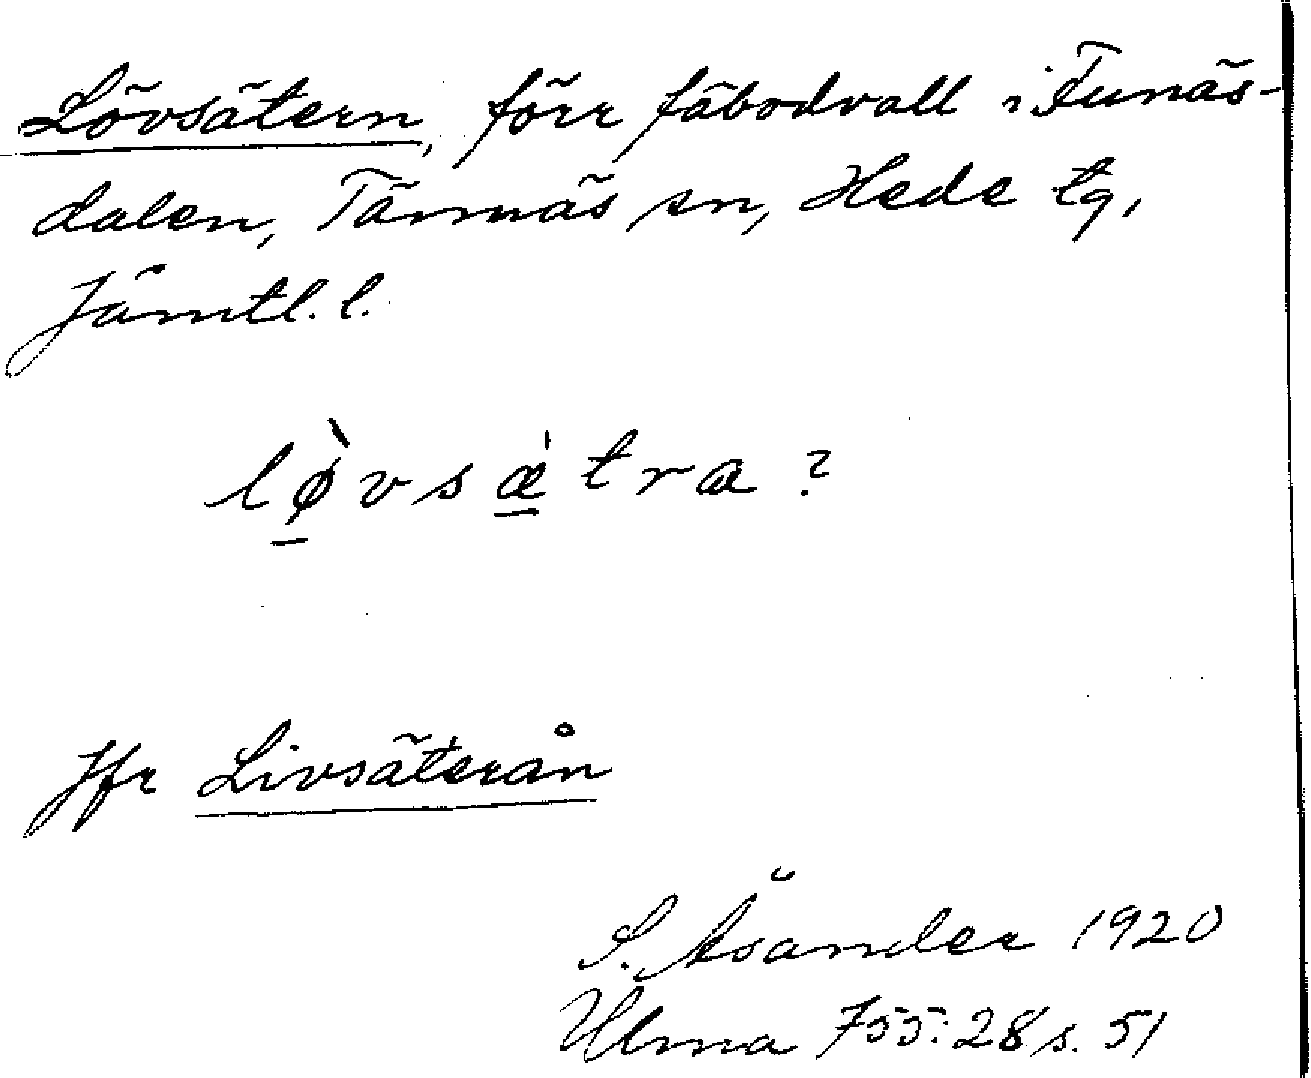 Lövsätern, förr fäbodvall i Funäs-
dalen, Tännäs sn, Hede tg,
Jämtl. l.
lø̀vsætra ?
Jfr Livsäterån
S. Åsander 1920
Ulma 755:28 s. 51